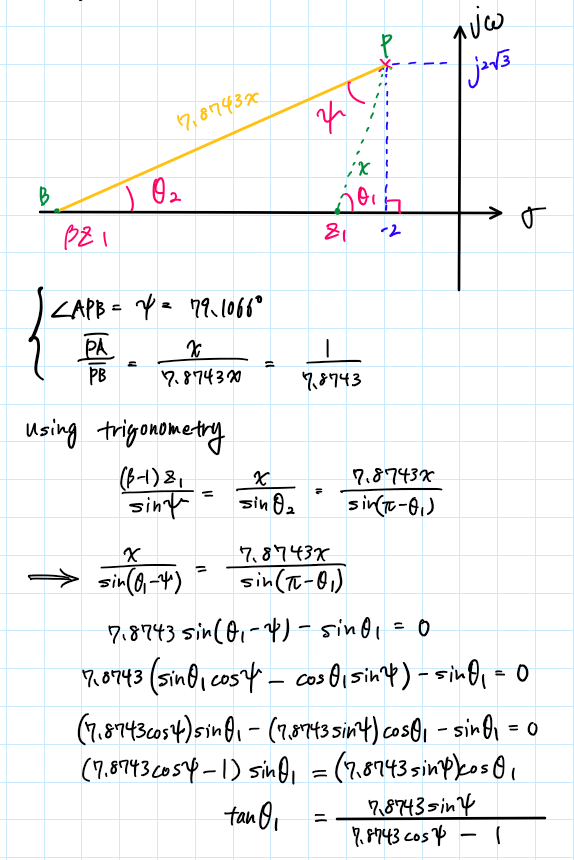 jω
P
j2√3
7.8743x
ψ
x
B
θ₂
θ₁
σ
βz₁
z₁
-2
∠APB = ψ = 79.1066°
PA̅/PB̅ = x/7.8743x = 1/7.8743
Using trigonometry
(β-1)z₁/sinψ = x/sinθ₂ = 7.8743x/sin(π-θ₁)
⟹ x/sin(θ₁-ψ) = 7.8743x/sin(π-θ₁)
7.8743 sin(θ₁-ψ) - sinθ₁ = 0
7.8743 (sinθ₁cosψ - cosθ₁sinψ) - sinθ₁ = 0
(7.8743cosψ)sinθ₁ - (7.8743sinψ)cosθ₁ - sinθ₁ = 0
(7.8743cosψ-1) sinθ₁ = (7.8743sinψ)cosθ₁
tanθ₁ = 7.8743sinψ/7.8743cosψ - 1